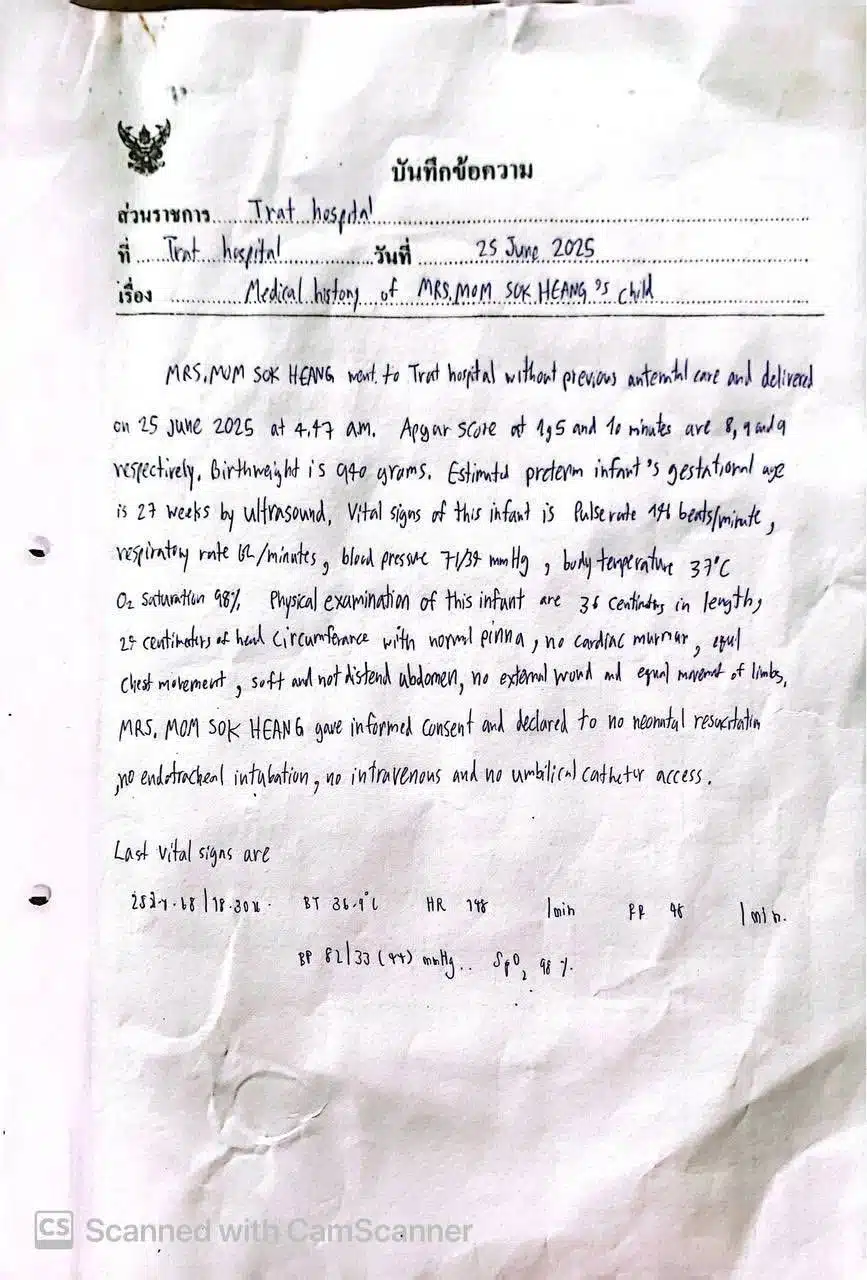 บันทึกข้อความ
ส่วนราชการ Trat hospital
ที่ Trat hospital วันที่ 25 June 2025
เรื่อง Medical history of MRS.MOM SOK HEANG's child
MRS.MOM SOK HEANG went to Trat hospital without previous antenatal care and delivered
on 25 June 2025 at 4.47 am. Apgar score at 1,5 and 10 minutes are 8, 9 and 9
respectively. Birthweight is 940 grams. Estimated preterm infant's gestational age
is 27 weeks by ultrasound. Vital signs of this infant is Pulse rate 146 beats/minute,
respiratory rate /minutes, blood pressure mmHg, body temperature 37°C
O2 saturation 98% Physical examination of this infant are 36 centimeters in length,
centimeters of head circumferance with normal pinna, no cardiac murmur, equal
chest movement, soft and not distend abdomen, no external wound and equal movement of limbs.
MRS. MOM SOK HEANG gave informed consent and declared to no neonatal resuscitation
,no endotracheal intubation, no intravenous and no umbilical catheter access.
Last vital signs are
BT 36.9°C HR /min RR /min.
BP 82/33 (44) mmHg.. SpO2 98 %.
CS Scanned with CamScanner